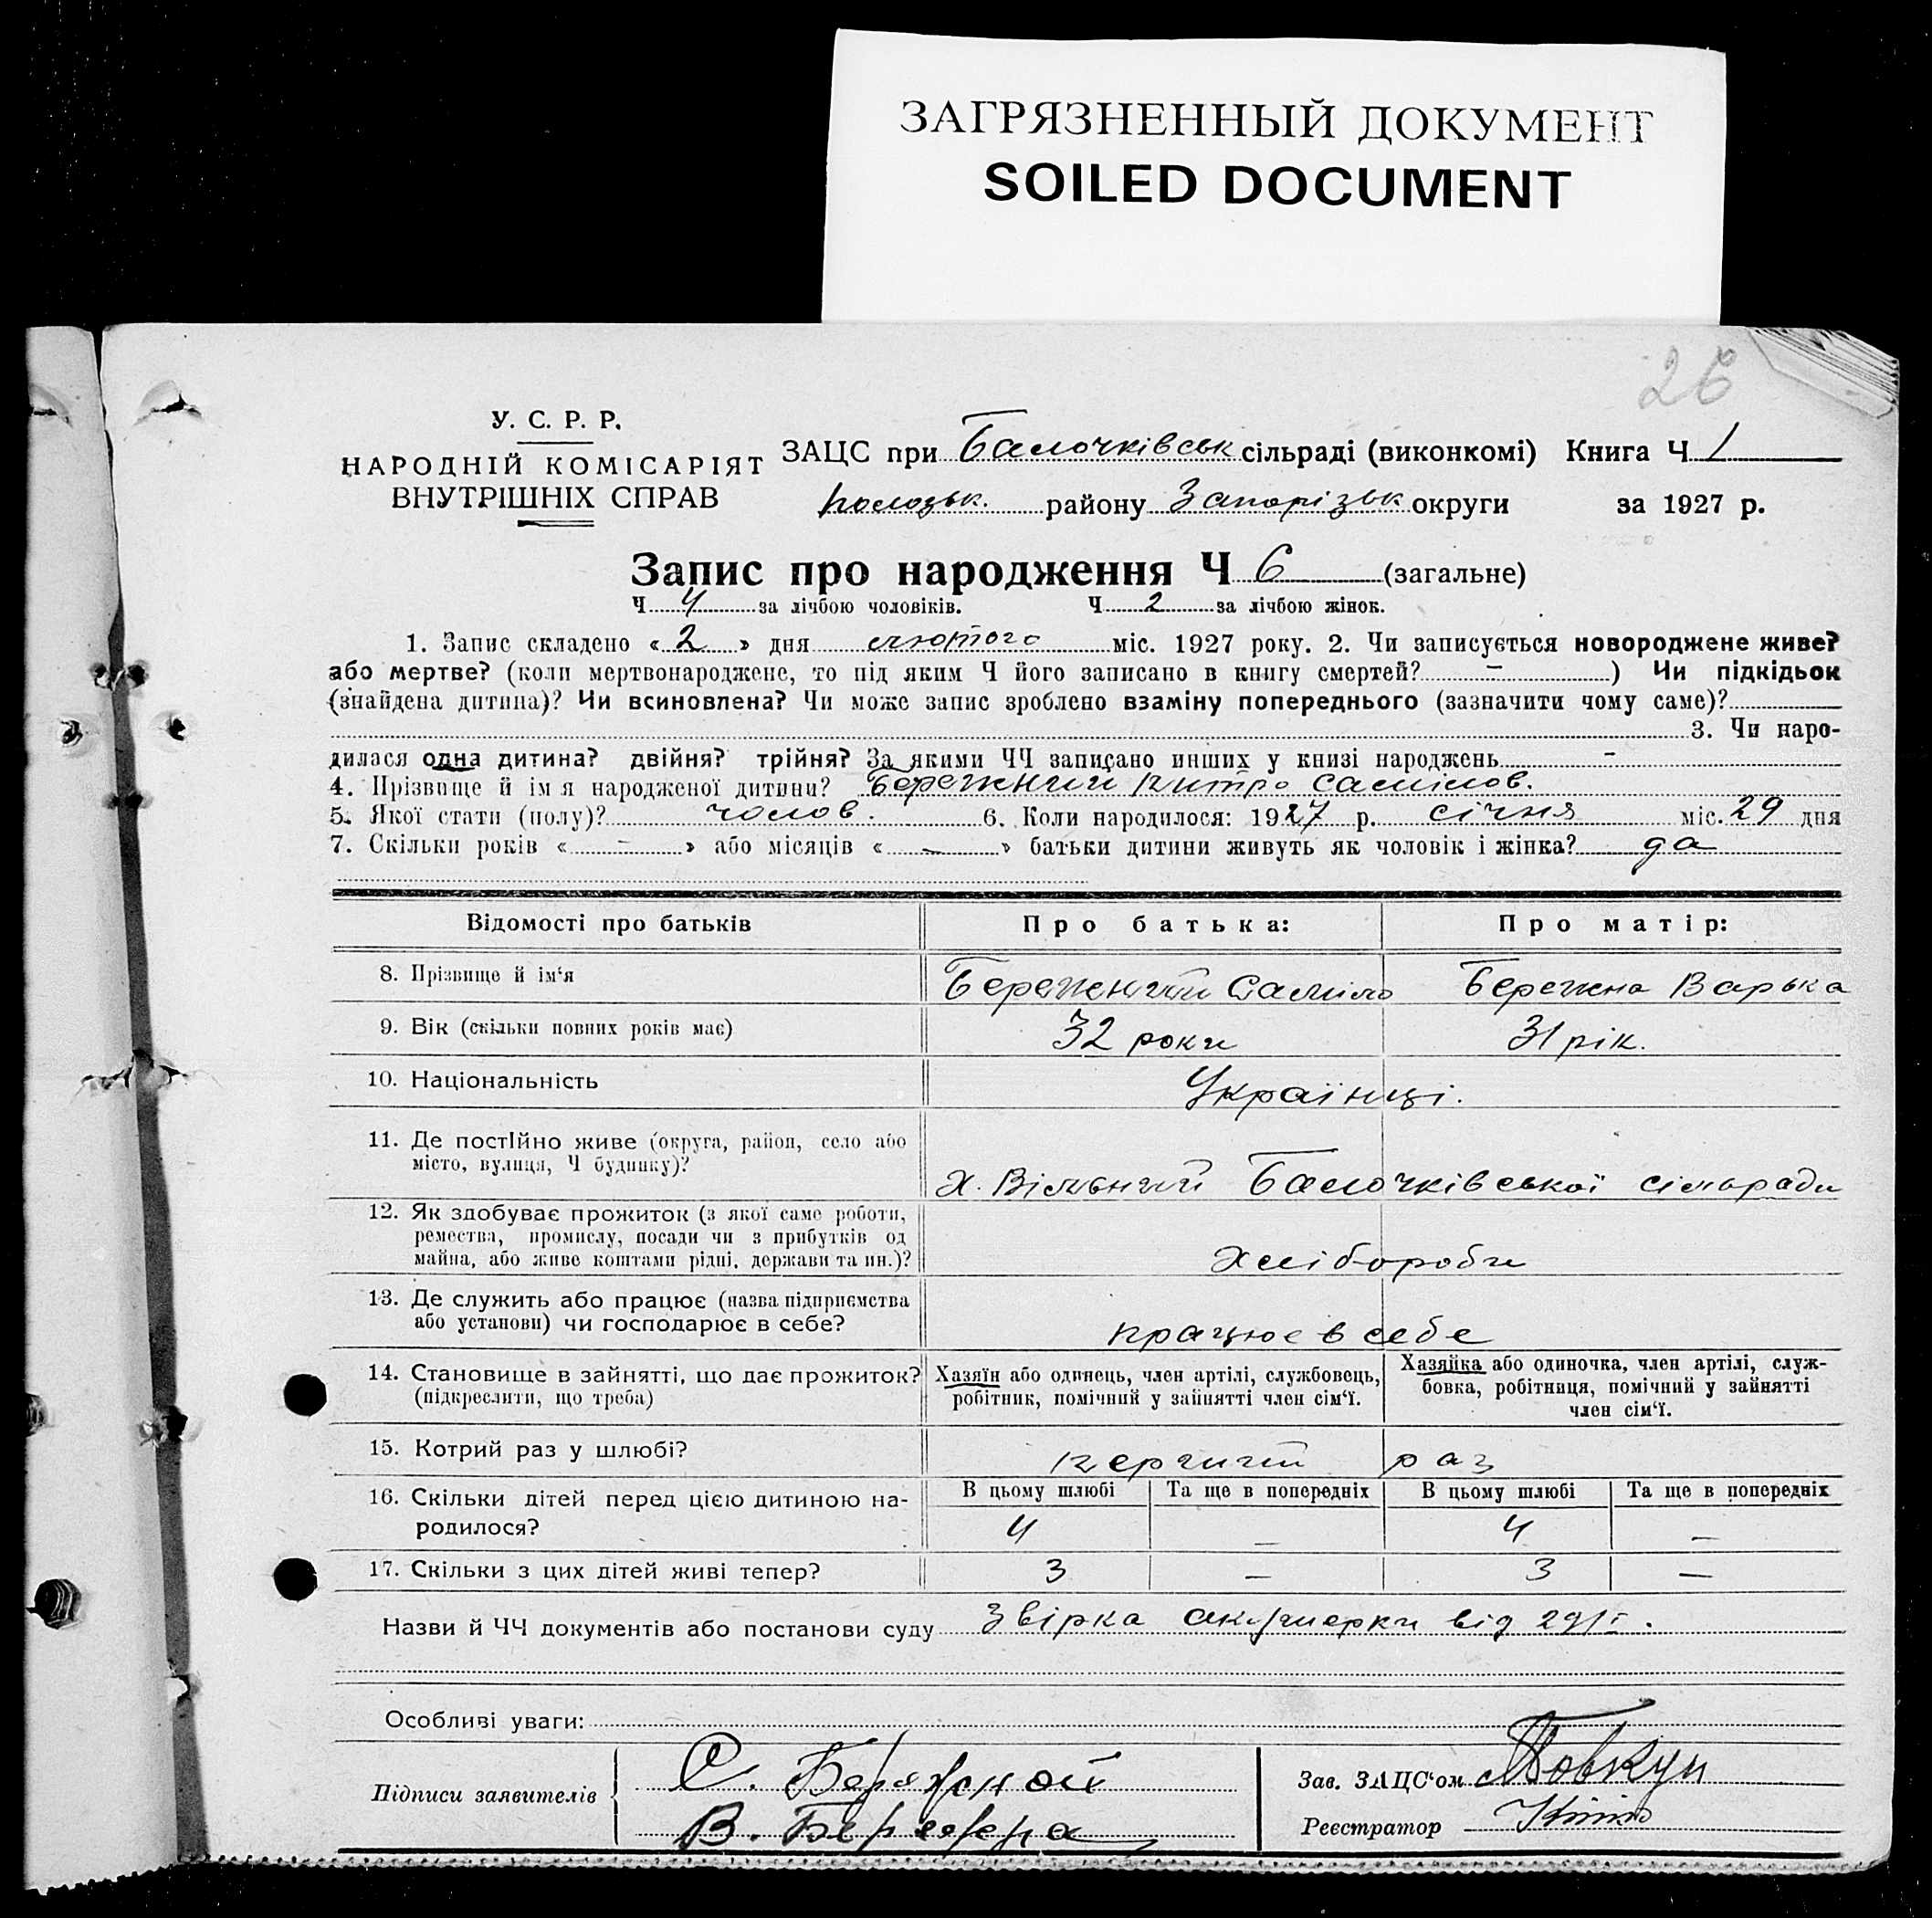 ЗАГРЯЗНЕННЫЙ ДОКУМЕНТ
SOILED DOCUMENT
26
У. С. Р. Р.
НАРОДНІЙ КОМІСАРІЯТ
ВНУТРІШНІХ СПРАВ
ЗАЦС при Балочківськ сільраді (виконкомі) Книга Ч 1
Полозьк. району Запорізьк округи за 1927 р.
Запис про народження Ч 6 (загальне)
Ч 4 за лічбою чоловіків. Ч 2 за лічбою жінок.
1. Запис складено «2» дня лютого міс. 1927 року. 2. Чи записується новороджене живе?
або мертве? (коли мертвонароджене, то під яким Ч його записано в книгу смертей? – ) Чи підкідьок
(знайдена дитина)? Чи всиновлена? Чи може запис зроблено взаміну попереднього (зазначити чому саме)?
3. Чи наро-
дилася одна дитина? двійня? трійня? За якими ЧЧ записано инших у книзі народжень –
4. Прізвище й ім я народженої дитини? Бережний Питро Самілов.
5. Якої стати (полу)? чолов. 6. Коли народилося: 1927 р. січня міс. 29 дня
7. Скільки років « – » або місяців « – » батьки дитини живуть як чоловік і жінка? да
Відомості про батьків Про батька: Про матір:
8. Прізвище й ім‘я Бережний Саміло Бережна Варька
9. Вік (скільки повних років має) 32 роки 31 рік.
10. Національність Українці.
11. Де постійно живе (округа, район, село або
місто, вулиця, Ч будинку)? х. Вільний Балочківської сільради
12. Як здобуває прожиток (з якої саме роботи,
ремества, промислу, посади чи з прибутків од
майна, або живе коштами рідні, держави та ин.)? Хлібороби
13. Де служить або працює (назва підприємства
або установи) чи господарює в себе? працює в себе
14. Становище в зайнятті, що дає прожиток?
(підкреслити, що треба)
Хазяїн або одинець, член артілі, службовець,
робітник, помічний у зайнятті член сім‘ї.
Хазяйка або одиночка, член артілі, служ-
бовка, робітниця, помічний у зайнятті
член сім‘ї.
15. Котрий раз у шлюбі? перший раз
16. Скільки дітей перед цією дитиною на-
родилося?
В цьому шлюбі Та ще в попередніх В цьому шлюбі Та ще в попередніх
4 – 4 –
17. Скільки з цих дітей живі тепер? 3 – 3 –
Назви й ЧЧ документів або постанови суду Звірка акушерки від 29/I.
Особливі уваги:
Підписи заявителів
С. Бережной
В. Бережна
Зав. ЗАЦС‘ом Товкун
Реєстратор